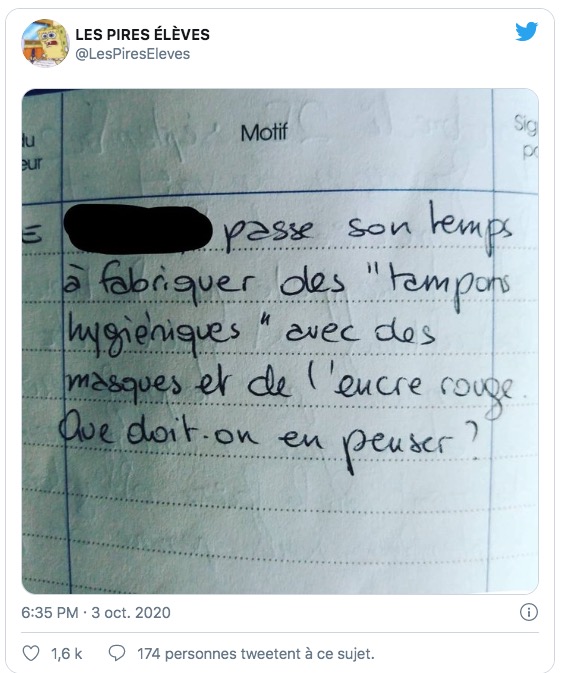 LES PIRES ÉLÈVES
@LesPiresEleves
Motif
passe son temps
à fabriquer des "tampons
hygiéniques" avec des
masques et de l'encre rouge.
Que doit-on en penser ?
6:35 PM · 3 oct. 2020
1,6 k
174 personnes tweetent à ce sujet.